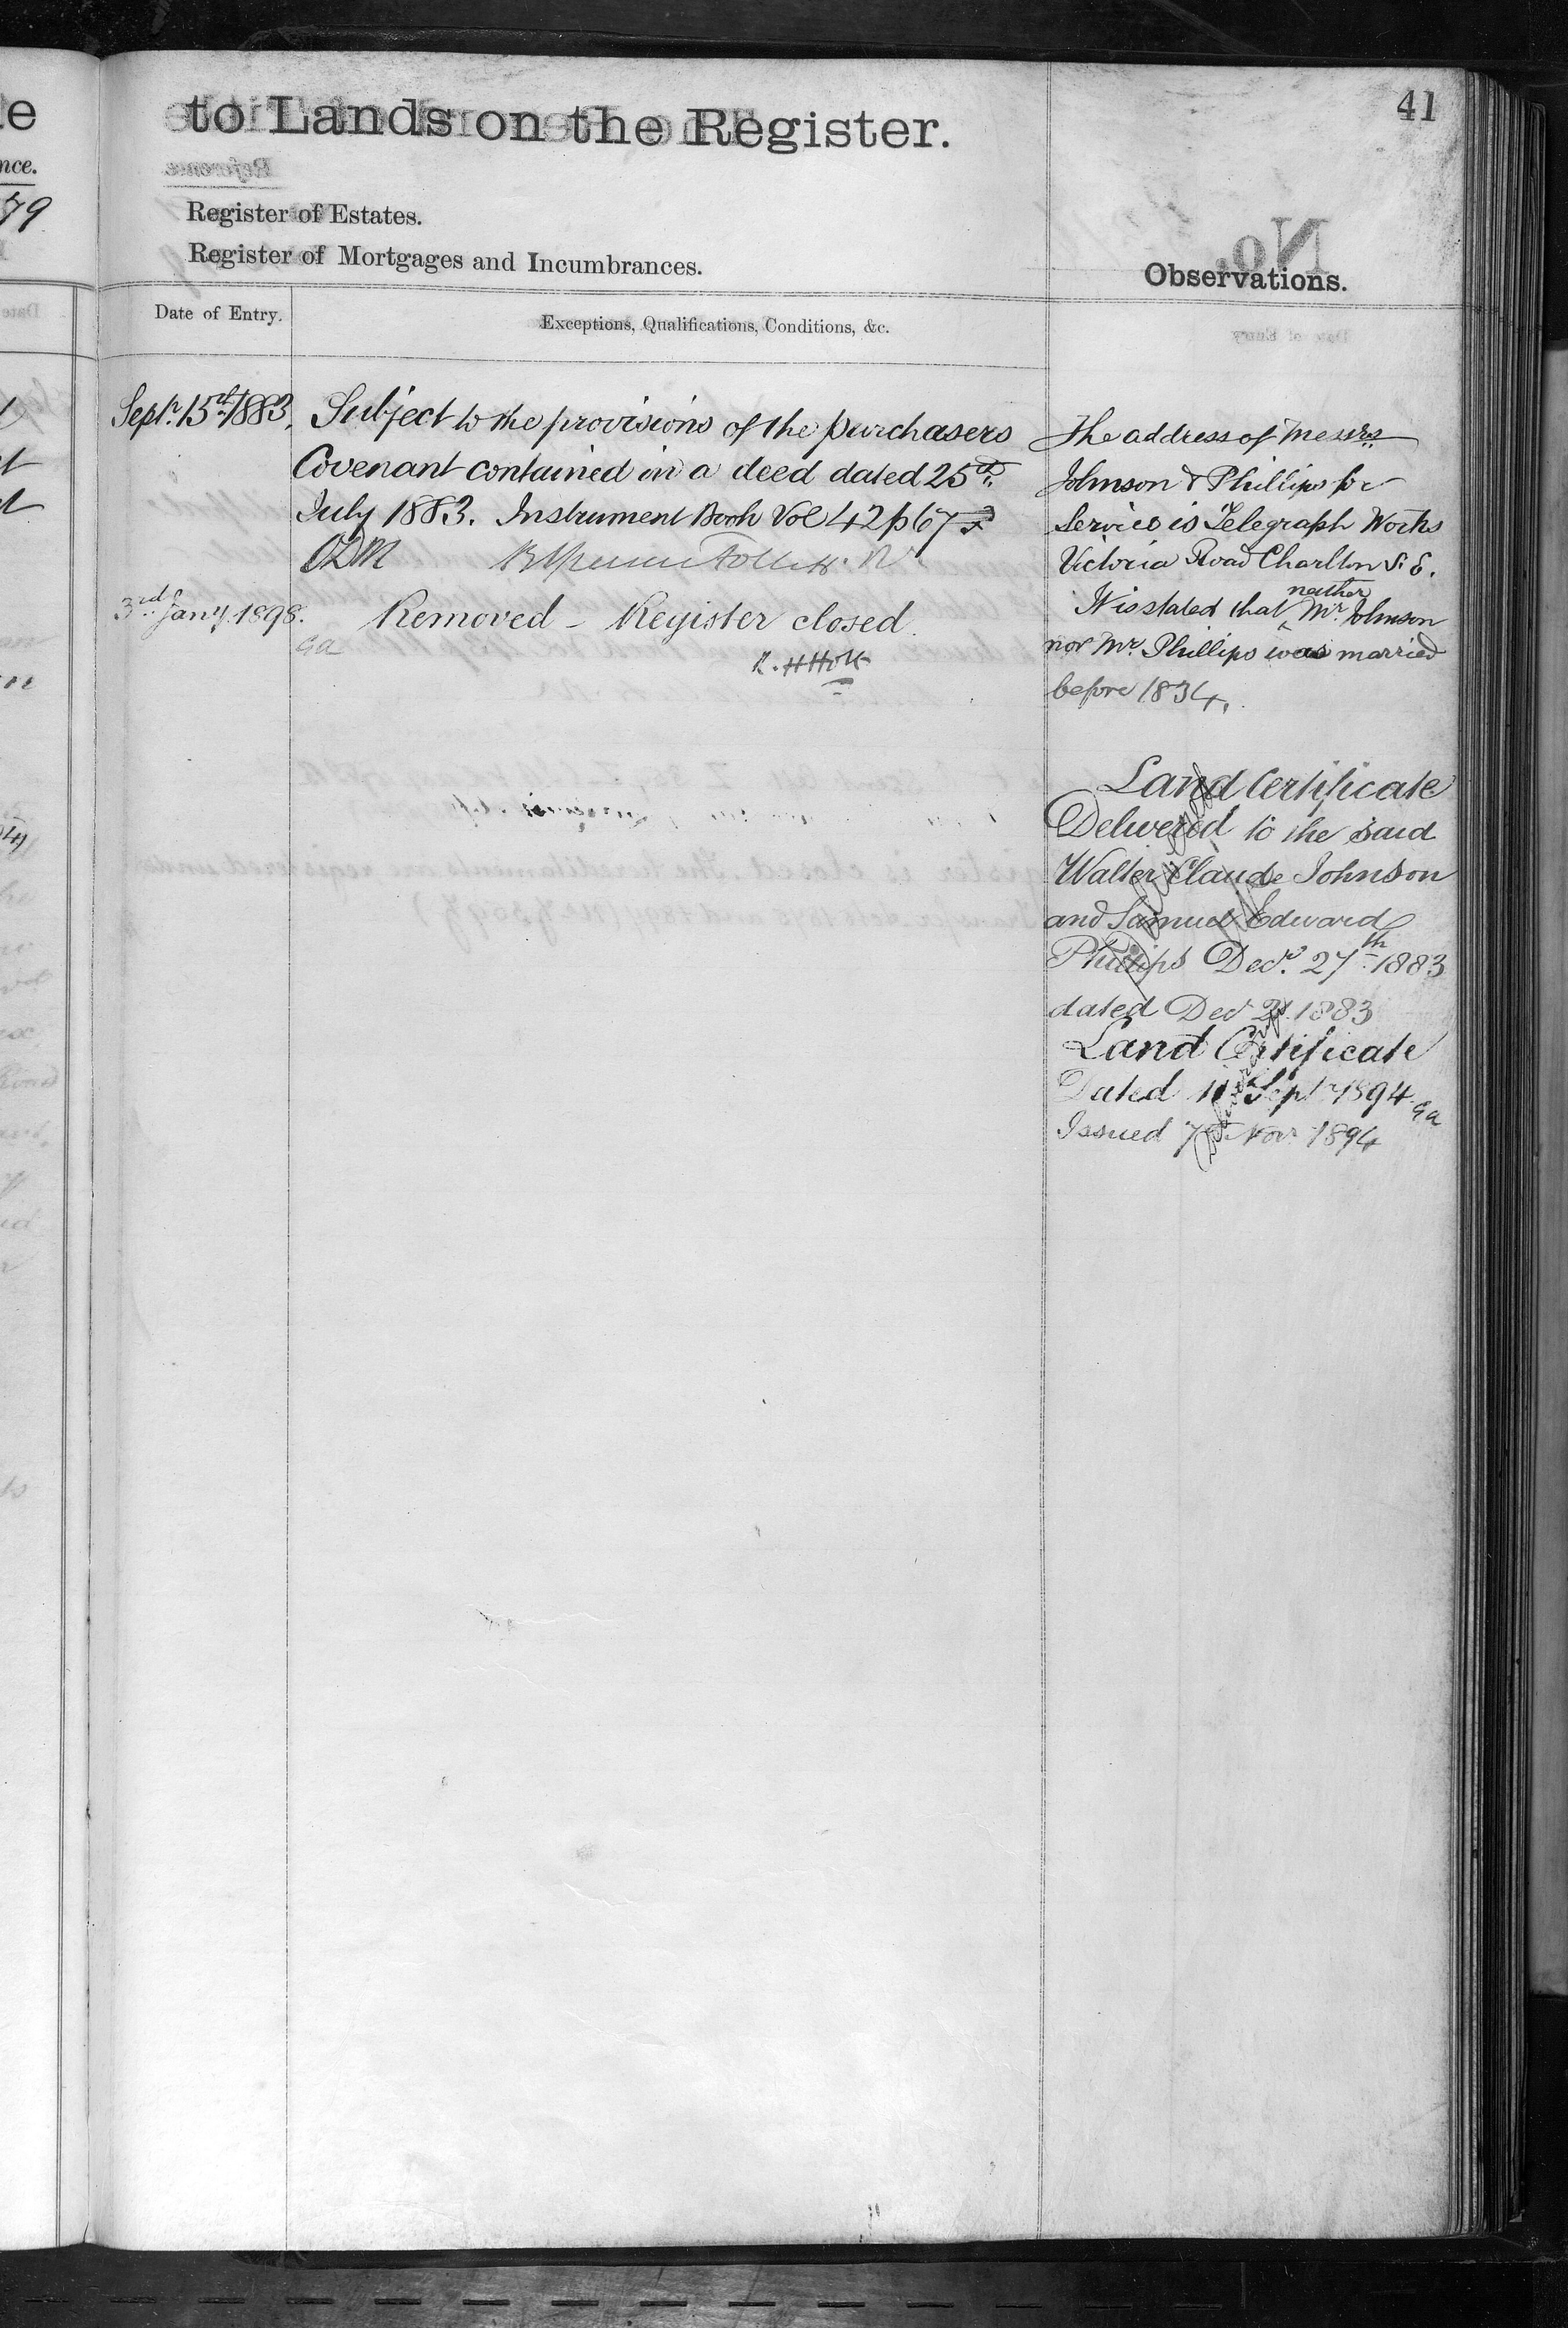 41
to Lands on the Register.
Register of Estates.
Register of Mortgages and Incumbrances.
Observations.
Date of Entry.
Exceptions, Qualifications, Conditions, &c.
Septr. 15th 1883.
Subject to the provisions of the purchasers
Covenant contained in a deed dated 25th
July 1883. Instrument Book Vol 42 p 67
3rd Jany. 1898.
Removed – Register closed.
Ga
R. H Holt
The address of Messrs
Johnson & Phillips for
Service is Telegraph Works
Victoria Road Charlton S. E.
It is stated that neither Mr. Johnson
nor Mr. Phillips was married
before 1834.
Land Certificate
Delivered to the said
Walter Claude Johnson
and Samuel Edward
Phillips Decr. 27th 1883
dated Decr 21 1883
Land Certificate
Dated 11 Sepr 1894 Ga
Issued 7th Novr 1894
e
nce.
79